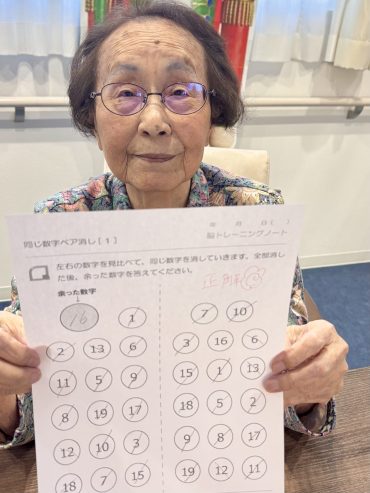 年 月 日( )
同じ数字ペア消し [ 1 ]
脳トレーニングノート
左右の数字を見比べて、同じ数字を消していきます。全部消し
た後、余った数字を答えてください。
正解
余った数字
16 1 7 10
2 13 6 3 16 6
11 5 9 15 1 13
8 19 17 18 5 2
12 10 3 9 8 17
18 7 15 19 12 11